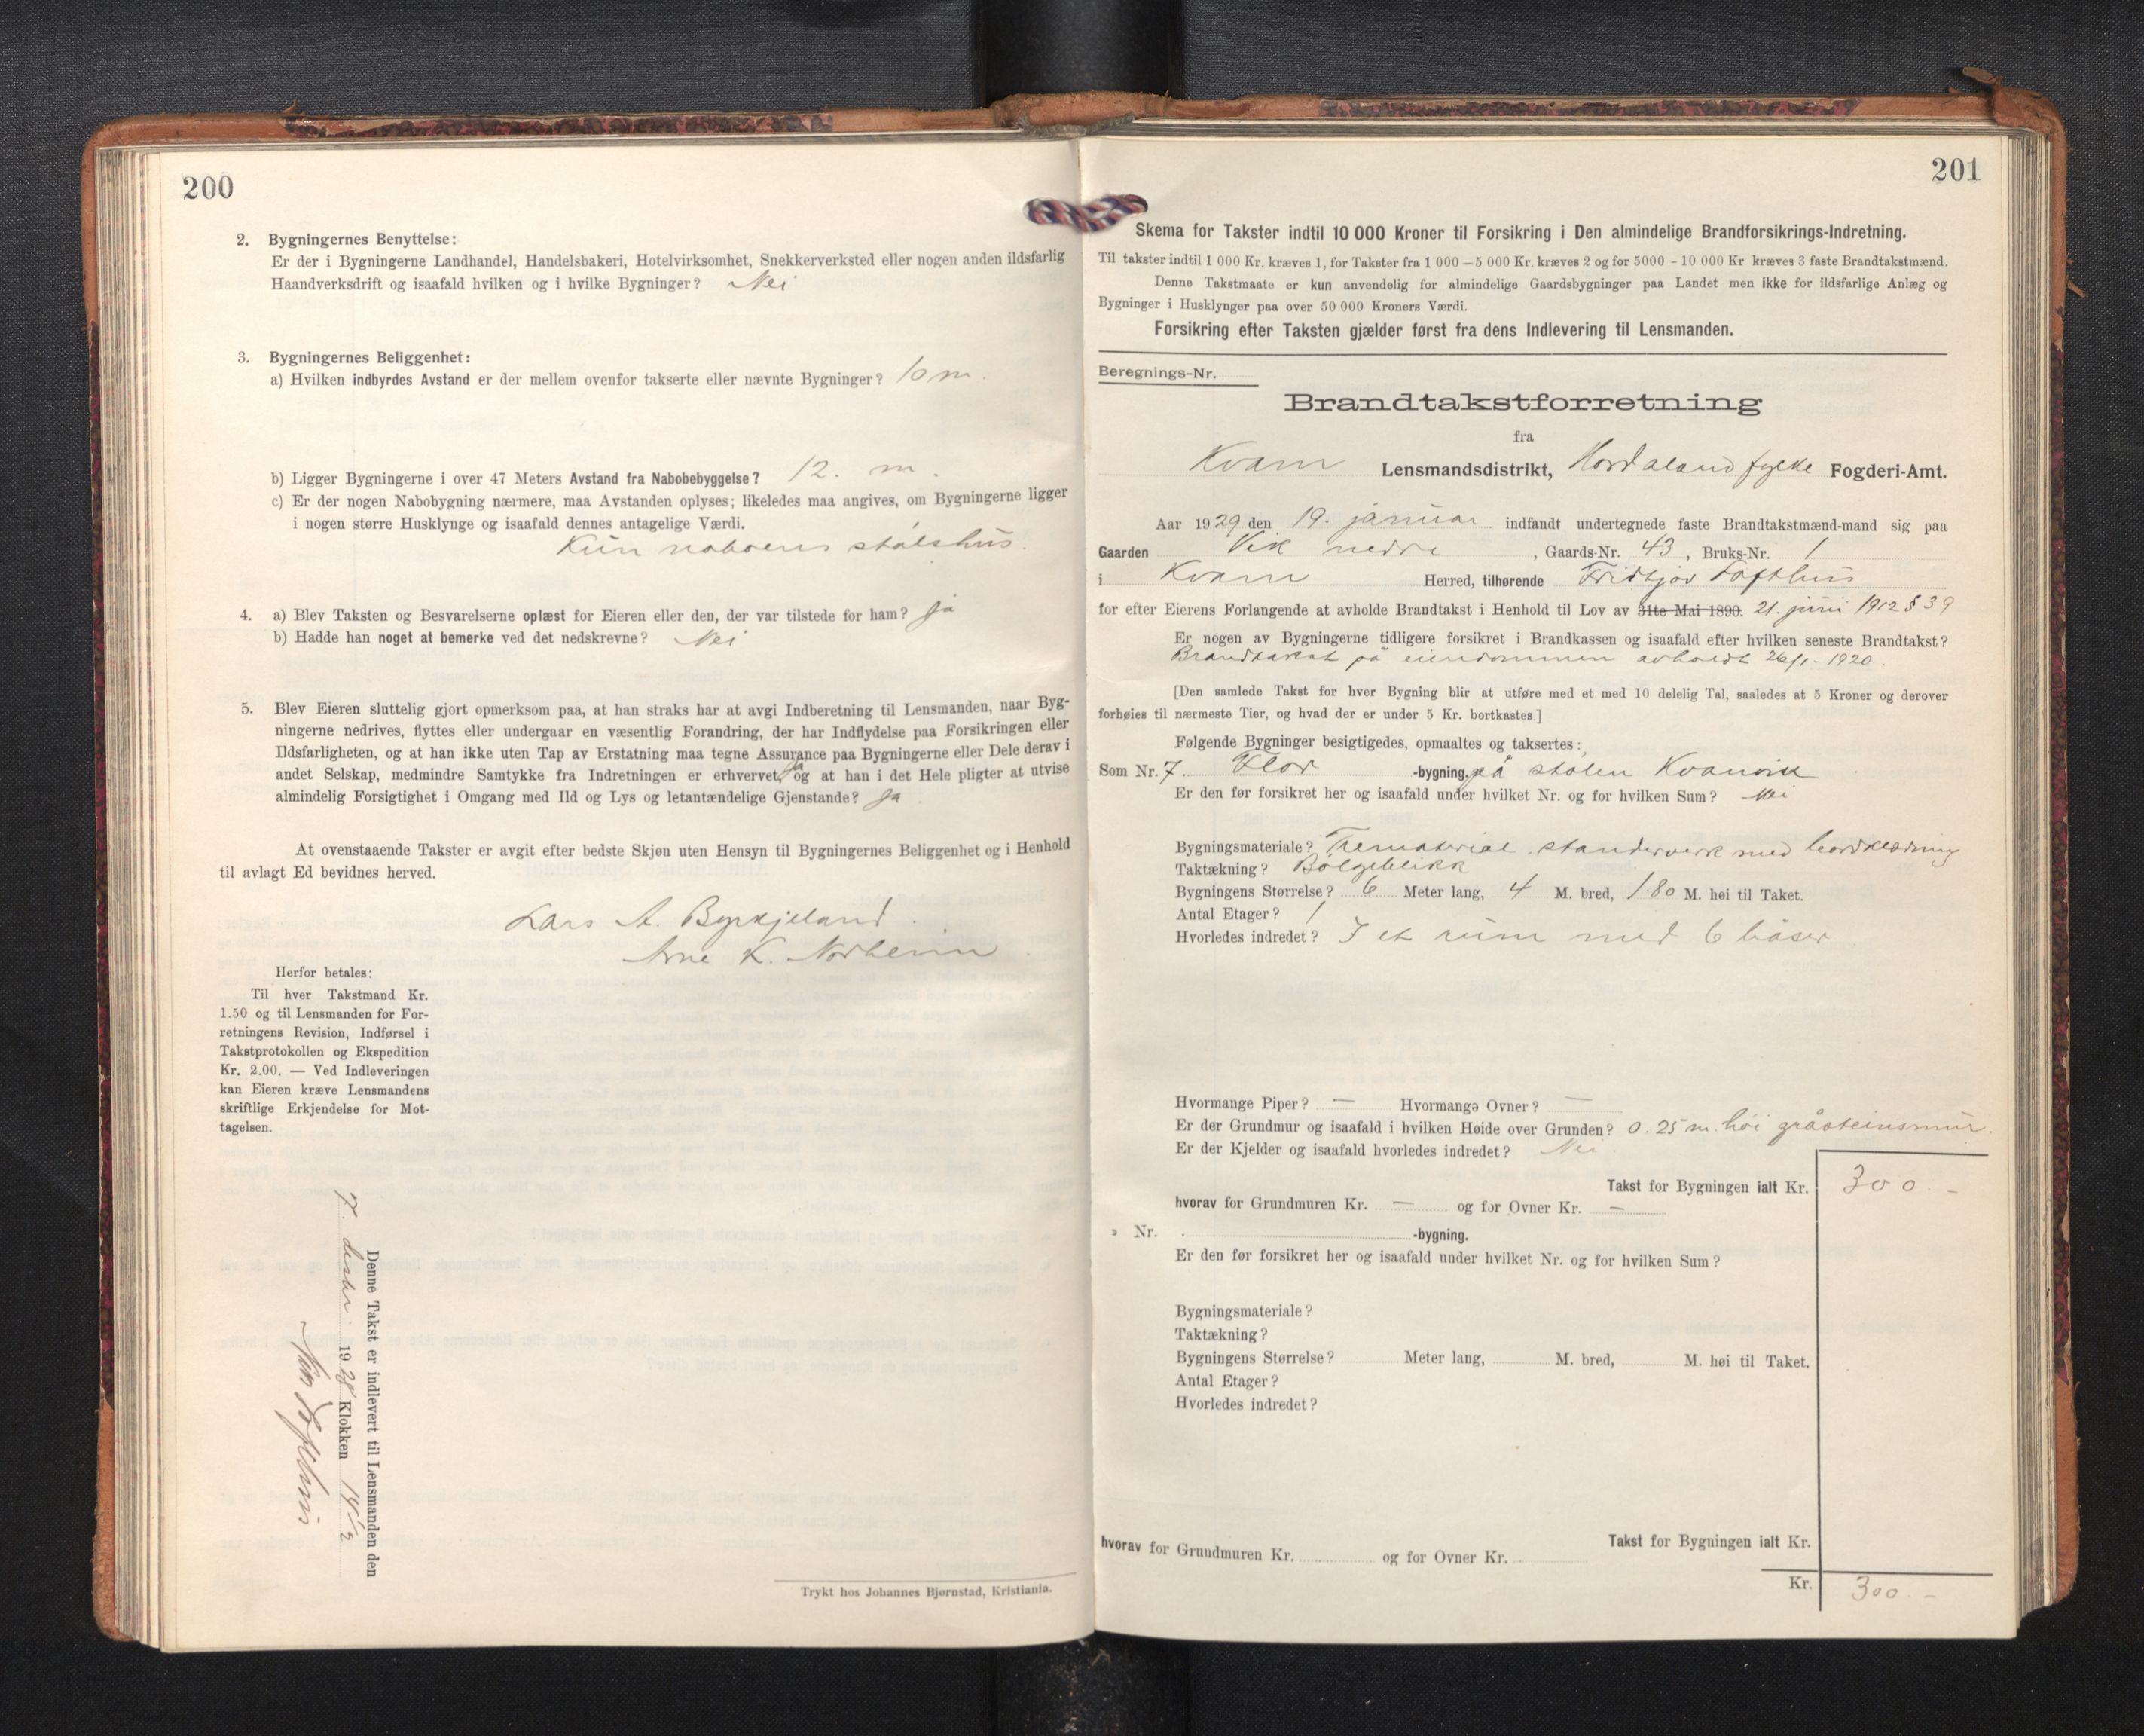 200
2. Bygningernes Benyttelse:
Er der i Bygningerne Landhandel, Handelsbakeri, Hotelvirksomhet, Snekkerverksted eller nogen anden ildsfarlig
Haandverksdrift og isaafald hvilken og i hvilke Bygninger? Nei
3. Bygningernes Beliggenhet:
a) Hvilken indbyrdes Avstand er der mellem ovenfor takserte eller nævnte Bygninger? 10 m.
b) Ligger Bygningerne i over 47 Meters Avstand fra Nabobebyggelse? 12. m.
c) Er der nogen Nabobygning nærmere, maa Avstanden oplyses; likeledes maa angives, om Bygningerne ligger
i nogen større Husklynge og isaafald dennes antagelige Værdi.
Kun naboens stølshus.
4. a) Blev Taksten og Besvarelserne oplæst for Eieren eller den, der var tilstede for ham? Ja
b) Hadde han noget at bemerke ved det nedskrevne? Nei
5. Blev Eieren sluttelig gjort opmerksom paa, at han straks har at avgi Indberetning til Lensmanden, naar Byg-
ningerne nedrives, flyttes eller undergaar en væsentlig Forandring, der har Indflydelse paa Forsikringen eller
Ildsfarligheten, og at han ikke uten Tap av Erstatning maa tegne Assurance paa Bygningerne eller Dele derav i
andet Selskap, medmindre Samtykke fra Indretningen er erhvervet, Ja og at han i det Hele pligter at utvise
almindelig Forsigtighet i Omgang med Ild og Lys og letantændelige Gjenstande? Ja
At ovenstaaende Takster er avgit efter bedste Skjøn uten Hensyn til Bygningernes Beliggenhet og i Henhold
til avlagt Ed bevidnes herved.
Lars A. Byrkjeland.
Arne K. Norheim
Herfor betales:
Til hver Takstmand Kr.
1.50 og til Lensmanden for For-
retningens Revision, Indførsel i
Takstprotokollen og Ekspedition
Kr. 2.00. — Ved Indleveringen
kan Eieren kræve Lensmandens
skriftlige Erkjendelse for Mot-
tagelsen.
Denne Takst er indlevert til Lensmanden den
7. desbr. 1928 Klokken 14 1/2
Tofthus
Trykt hos Johannes Bjørnstad, Kristiania.
201
Skema for Takster indtil 10 000 Kroner til Forsikring i Den almindelige Brandforsikrings-Indretning.
Til takster indtil 1 000 Kr. kræves 1, for Takster fra 1 000 – 5 000 Kr. kræves 2 og for 5000 - 10 000 Kr kræves 3 faste Brandtakstmænd.
Denne Takstmaate er kun anvendelig for almindelige Gaardsbygninger paa Landet men ikke for ildsfarlige Anlæg og
Bygninger i Husklynger paa over 50 000 Kroners Værdi.
Forsikring efter Taksten gjælder først fra dens Indlevering til Lensmanden.
Beregnings-Nr.
Brandtakstforretning
fra
Kvam Lensmandsdistrikt, Hordaland fylke Fogderi-Amt.
Aar 1929 den 19. januar indfandt undertegnede faste Brandtakstmænd-mand sig paa
Gaarden Vik nedre, Gaards-Nr. 43, Bruks-Nr. 1
i Kvam Herred, tilhørende Fridtjov Tofthus
for efter Eierens Forlangende at avholde Brandtakst i Henhold til Lov av 31te Mai 1890. 21. juni 1912 § 39
Er nogen av Bygningerne tidligere forsikret i Brandkassen og isaafald efter hvilken seneste Brandtakst?
Brandtakst på eiendommen avholdt 26/1-1920.
[Den samlede Takst for hver Bygning blir at utføre med et med 10 delelig Tal, saaledes at 5 Kroner og derover
forhøies til nærmeste Tier, og hvad der er under 5 Kr. bortkastes.]
Følgende Bygninger besigtigedes, opmaaltes og taksertes:
Som Nr. 7. Flor -bygning. på stølen Kvanvik
Er den før forsikret her og isaafald under hvilket Nr. og for hvilken Sum? Nei
Bygningsmateriale? Trematerial. standerverk med bordklædning
Taktækning? Bølgeblikk
Bygningens Størrelse? 6 Meter lang, 4 M. bred, 1.80 M. høi til Taket.
Antal Etager? 1
Hvorledes indredet? I et rum med 6 båser
Hvormange Piper? — Hvormange Ovner? —
Er der Grundmur og isaafald i hvilken Høide over Grunden? 0.25 m. høi gråsteinsmur.
Er der Kjelder og isaafald hvorledes indredet? Nei
Takst for Bygningen ialt Kr. 300.-
hvorav for Grundmuren Kr. — og for Ovner Kr. —
» Nr. -bygning.
Er den før forsikret her og isaafald under hvilket Nr. og for hvilken Sum?
Bygningsmateriale?
Taktækning?
Bygningens Størrelse? Meter lang, M. bred, M. høi til Taket.
Antal Etager?
Hvorledes indredet?
Takst for Bygningen ialt Kr.
hvorav for Grundmuren Kr. og for Ovner Kr.
Kr. 300.-